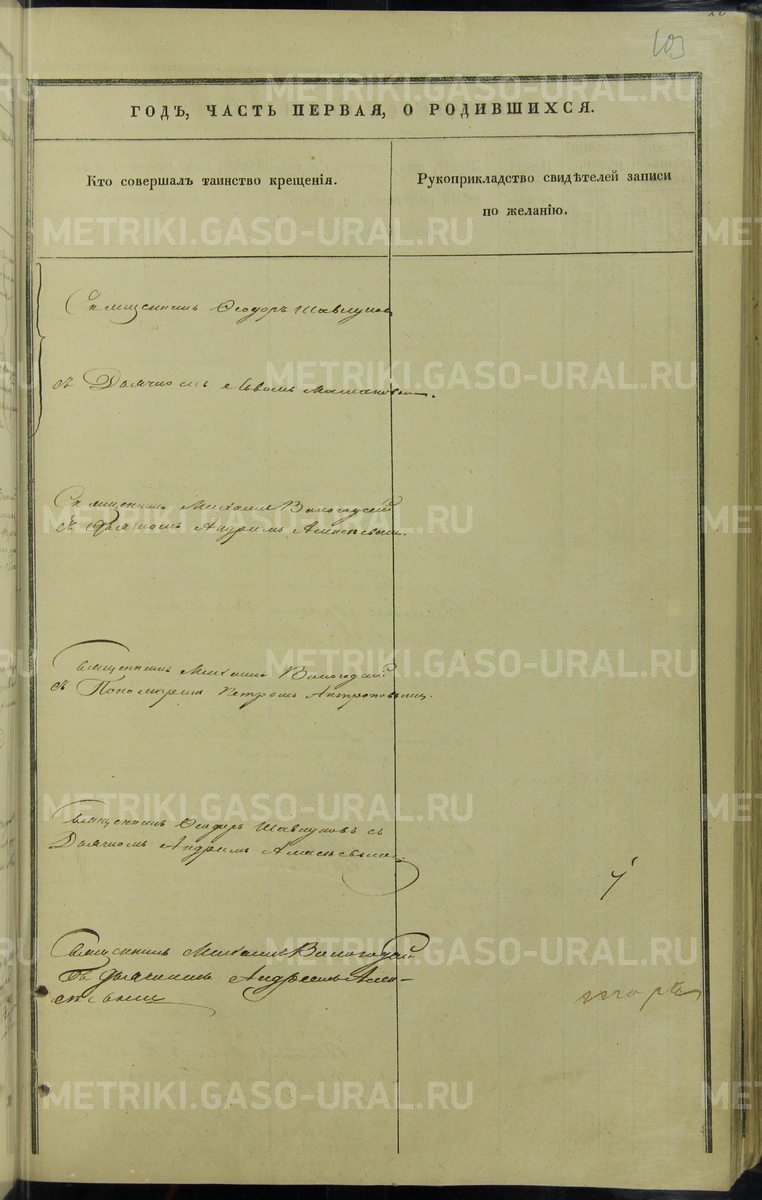 103
ГОДЪ, ЧАСТЬ ПЕРВАЯ, О РОДИВШИХСЯ.
Кто совершалъ таинство крещенія.
Рукоприкладство свидѣтелей записи
по желанію.
Священникъ Ѳеодоръ Шавкуновъ
съ Дьячкомъ
Священникъ Михаилъ Вологодскій
съ Дьячкомъ Андреемъ Алексѣевымъ.
Священникъ Михаилъ Вологодскій
съ Пономаремъ Петромъ
Священникъ Ѳеодоръ Шавкуновъ съ
Дьячкомъ Андреемъ Алексѣевымъ.
Священникъ Михаилъ Вологодскій
съ Дьячкомъ Андреемъ Алек-
сѣевымъ
METRIKI.GASO-URAL.RU